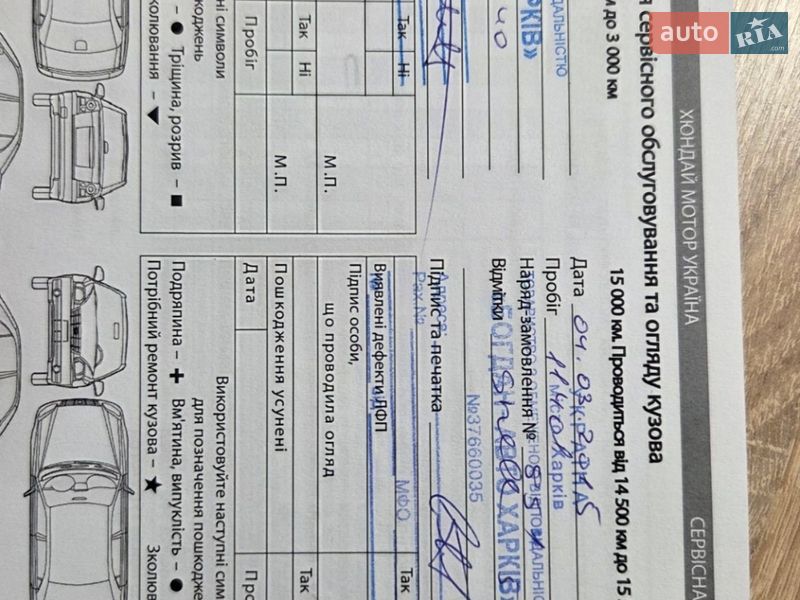 auto RIA
.com
ХЮНДАЙ МОТОР УКРАЇНА
СЕРВІСНА
сервісного обслуговування та огляду кузова
м до 3 000 км
15 000 км. Проводиться від 14 500 км до 15
ДАЛЬНІСТЮ
АРКІВ»
Дата 04.03.2015
УКРАЇНА
Пробіг 1140
м. Харків
Наряд-замовлення №
Відмітки
ХАРКІВ»
№37660035
Підпис та печатка
Адреса:
Рах.№
МФО
Так Ні
Виявлені дефекти ЛФП
Так
Підпис особи,
що проводила огляд
М.П.
Так Ні
М.П.
Пошкодження усунені
Так
Пробіг
Дата
Пр
ні символи
коджень
● Тріщина, розрив – ■
колювання – ▼
Використовуйте наступні сим
для позначення пошкодже
Подряпина – + Вм'ятина, випуклість – ●
Потрібний ремонт кузова – ★ Зколюв